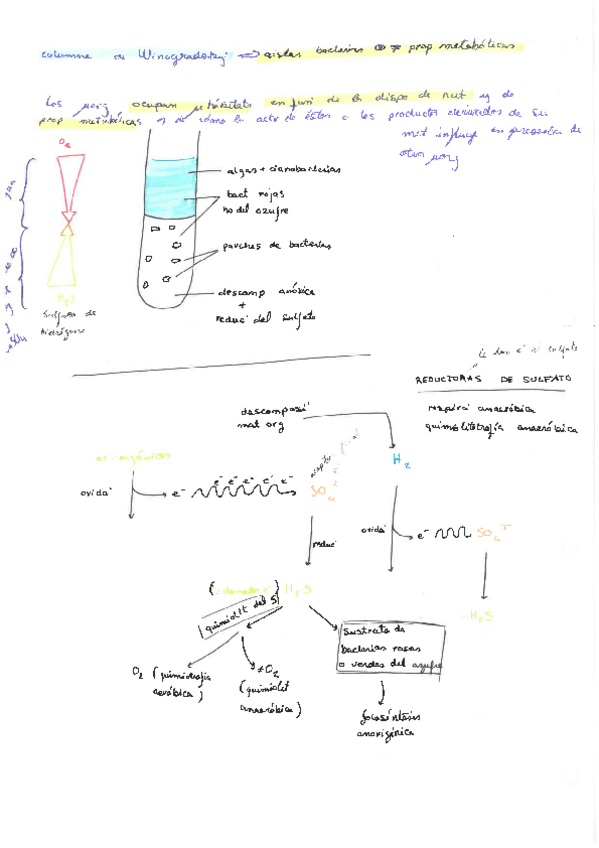 columna de Winogradsky => aislar bacterias prop metabólicas
Los µorg ocupan µhábitats en funⁱ de la dispo de nut y de
prop metabólicas y de cómo la actv de éstos o los productos derivados de su
met influye en presencia de
otros µorg
O₂
algas + cianobacterias
bact rojas
no del azufre
parches de bacterias
H₂S
descomp anóxica
+
reducⁱ del sulfato
Sulfuro de
hidrógeno
REDUCTORAS DE SULFATO
respiraⁱ anaeróbica
quimiolitotrofía anaeróbica
descomposiⁱ
mat org
H₂
ac. orgánicos
oxidaⁱ
e⁻ e⁻ e⁻ e⁻ e⁻
e⁻
SO₄
oxidaⁱ
e⁻
SO₄
reducⁱ
H₂S
H₂S
quimiolit del S
Sustrato de
bacterias rojas
o verdes del azufre
O₂ (quimiotrofia
aeróbica)
≠O₂
(quimiolit
anaeróbica)
fotosíntesis
anoxigénica